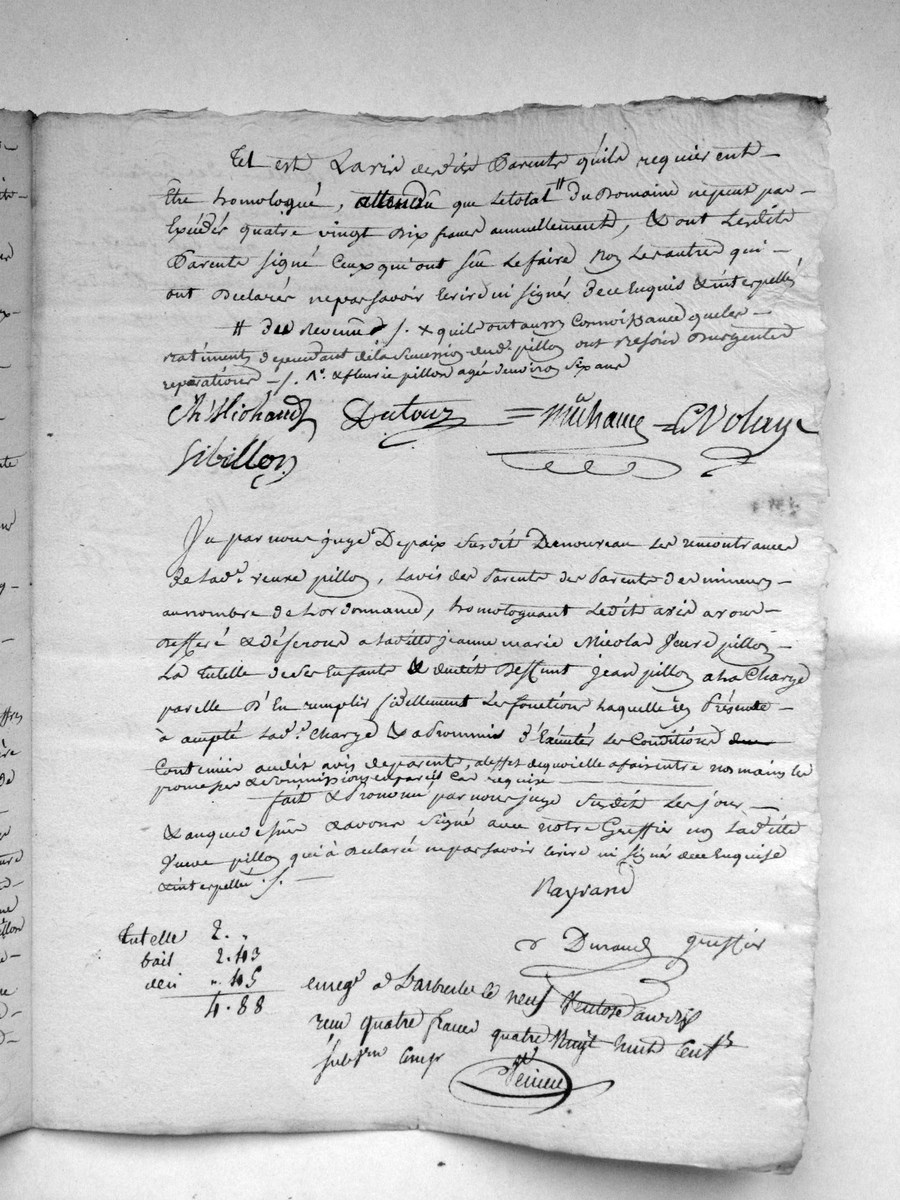 Tel est Lavis desdits Parents quils requierent
Etre homologué, attendû que Letotal # Du Domaine nepeut pas
Exceder quatre vingt Dix francs annuellement, & ont Lesdits
Parents signé Ceux qui ont sçû Le faire Non Les autres qui
ont Declarés nepas savoir Ecrire ni signér dece Enquis & interpellés
# Des Revenus /. x quils ont aussi Connoissance que les
batiments dependant dela Succession dud. pillon ont besoin Durgentes
reparations /. & fleurie pillon agée denviron six ans
Michaud Dutour = = Nolay
Sibillon
Vu par nous juge Depaix susdit Denouveau Les remontrances
De lad. veuve pillon, Lavis des Parents des Parents des mineurs
aunombre de Lordonnance, homologuant Ledit avis avons
Defferé & déferons a Ladite jeanne marie Nicolas veuve pillon
La tutelle de ses Enfants & dudit Deffunt jean pillon ala Charge
parelle D'En remplir fidellement Les fonctions Laquelle ici Présente
à accepté Lad. Charge & a Prommis D'Executér Les Conditions
Contenues audit avis deparents, aleffet dequoi elle afais entre nos mains les
promesses & soummissions enpareil Cas requise
fait & Prononcé par nous juge susdit Les jour
& anque dessus & avons signé avec notre Greffier non Ladite
veuve pillon qui à Declaré nepas savoir Ecrire ni signé dece Enquise
& interpellé ./.
Rayrand
Durand greffier
tutelle 2. "
bail 2.43
deci ". 45
4.88
enregé a Larbresle le neuf Ventose an dix
recu quatre francs quatre vingt huit centes
subvon compr